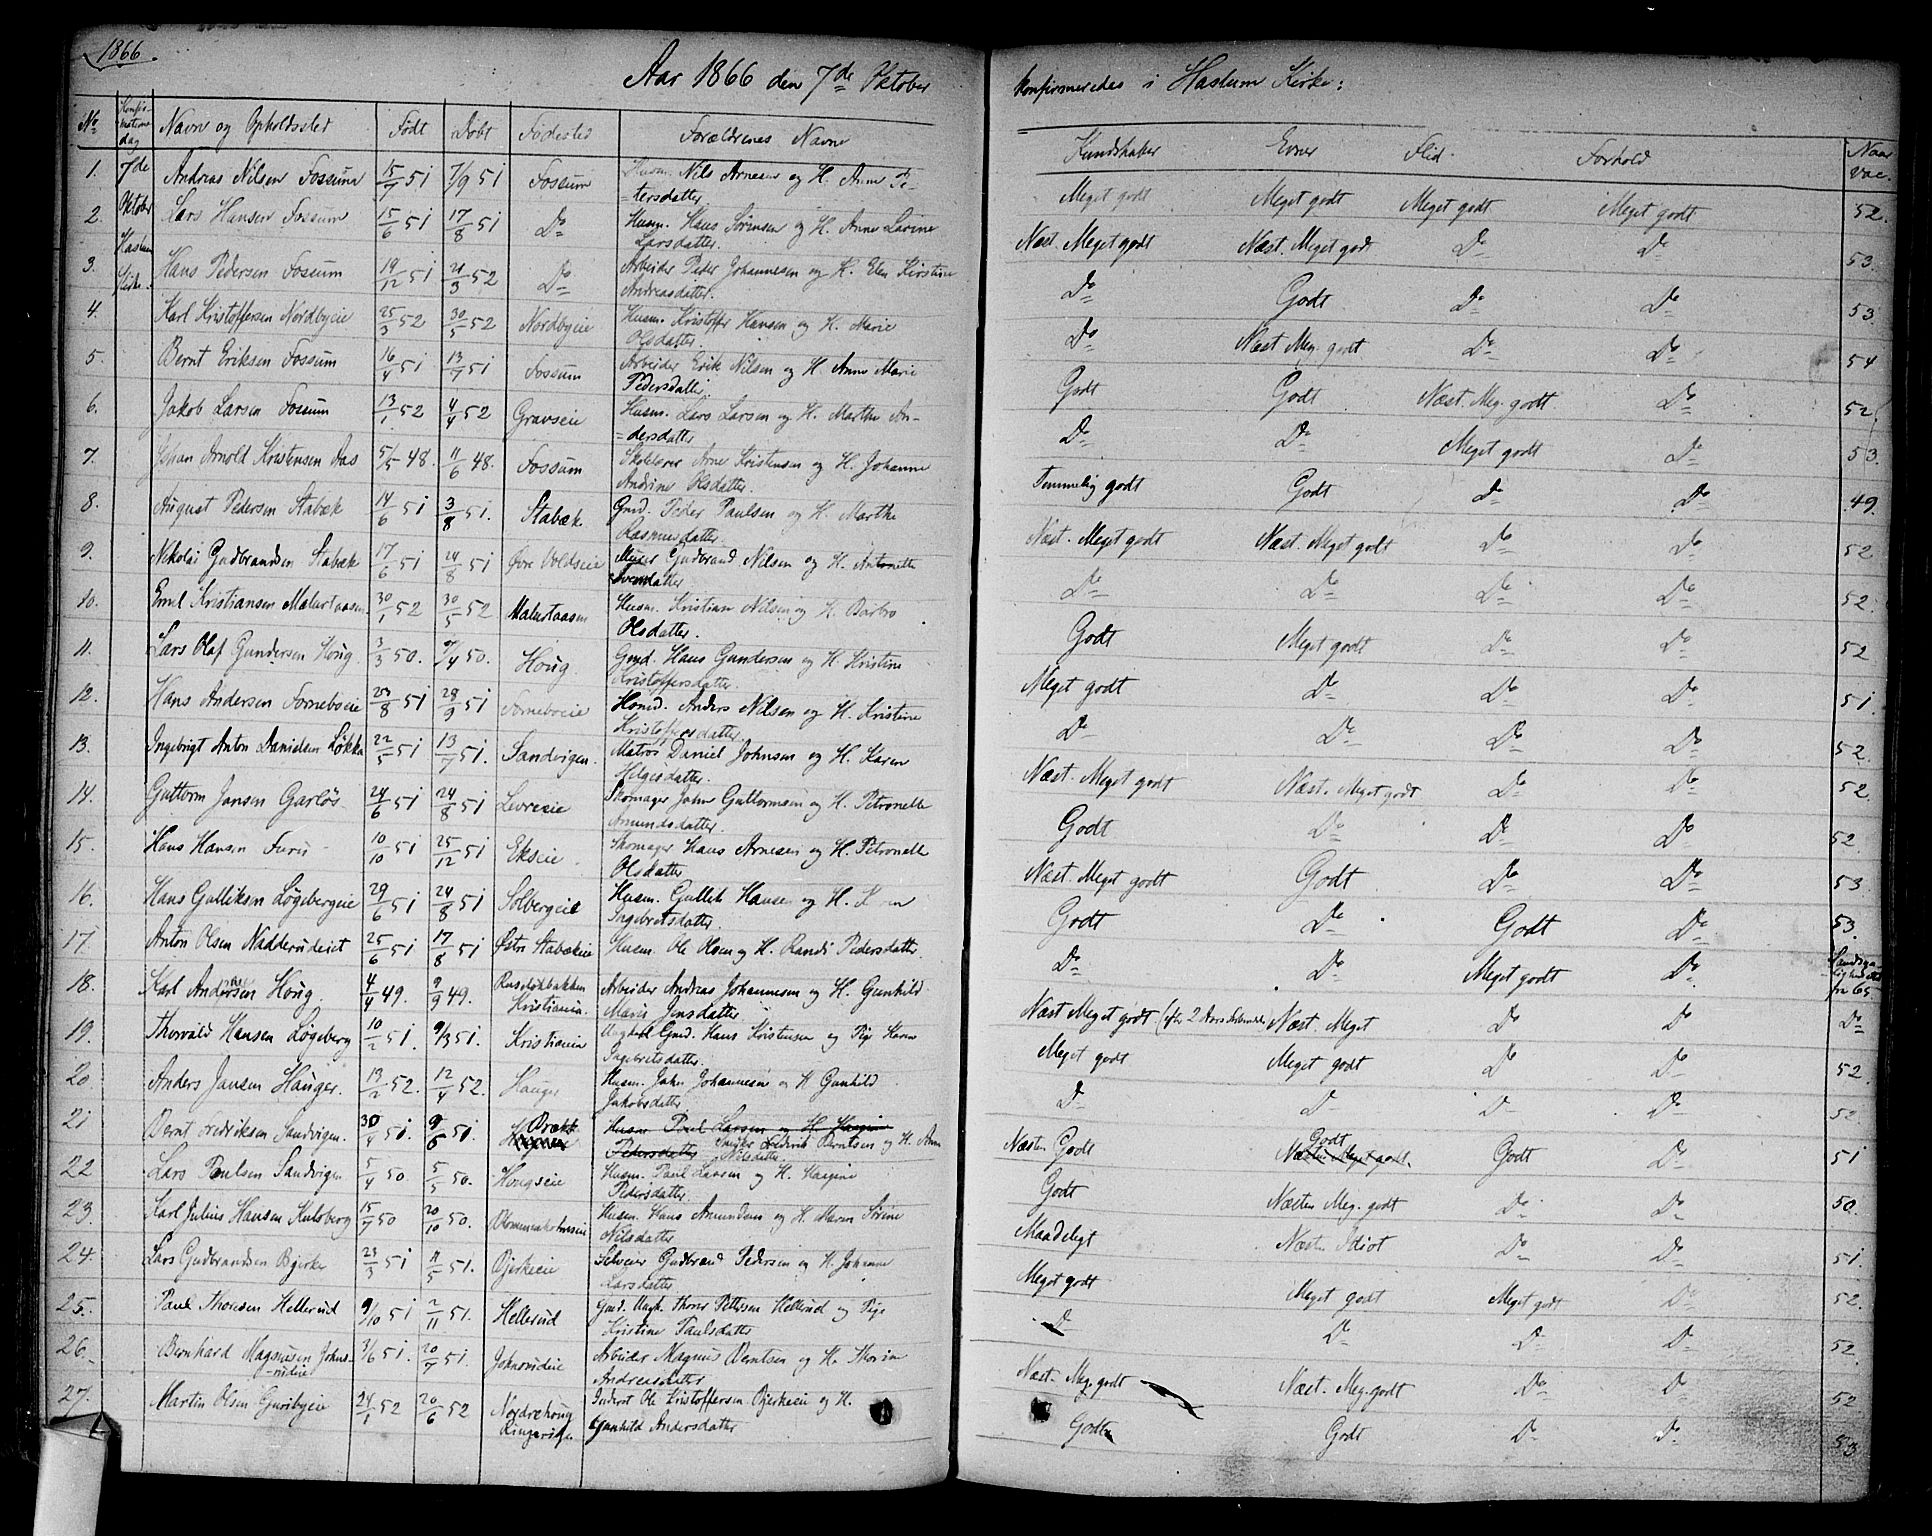 1866.
Aar 1866 den 7de Oktober konfirmeredes i Haslum Kirke:
No Konfirmations dag Navne og Opholdssted Født Døbt Fødested Forældrenes Navne Kundskaber Evner Flid Forhold Naar vac.
7de Oktober Haslum Kirke.
1. Andreas Nilsen Fossum 15/7 51 7/9 51 Fossum Husm. Nils Arnesen og H. Anne Pe- Meget godt Meget godt Meget godt Meget godt 52.
=tersdatter.
2. Lars Hansen Fossum 15/6 51 17/8 51 Do Husm. Hans Sørensen og H. Anne Lovine Næst. Meget godt Næst. Meget godt Do Do 53.
Larsdatter.
3. Hans Pedersen Fossum 19/12 51 21/3 52 Do Arbeider Peder Johannesen og H. Elen Kirstine Do Godt Do Do 53.
Andreasdatter.
4. Karl Kristoffersen Nordbyeie 25/3 52 30/5 52 Nordbyeie Husm. Kristoffer Hansen og H. Marie Do Næst Meg. godt Do Do 54
Olsdatter.
5. Bernt Eriksen Fossum 16/4 51 13/7 51 Fossum Arbeider Erik Nilsen og H. Anne Marie Godt Godt Næst. Meg. godt Do 52.
Pedersdatter
6. Jakob Larsen Fossum 13/1 52 4/4 52 Gravseie Husm. Lars Larsen og H. Marthe An- Do Do Meget godt Do 53.
=dersdatter
7. Johan Arnold Kristensen Aas 5/5 48. 11/6 48. Fossum Skolelærer Arne Kristensen og H. Johanne Temmelig godt Godt Do Do 49.
Andrine Olsdatter.
8. August Pedersen Stabæk 14/6 51 3/8 51. Stabæk Gmd. Peder Paulsen og H. Marthe Næst. Meget godt Næst. Meget godt Do Do 52
Rasmusdatter.
9. Nikolai Gudbrandsen Stabæk 17/6 51 24/8 51 Øvre Voldseie Murer Gudbrand Nilsen og H. Antonette Do Do Do Do 52.
Svendatter
10. Emil Kristiansen Malurtaasen 30/1 52 30/5 52 Malurtaasen Husm. Kristian Nilsen og H. Barbro Godt Meget godt Do Do 52
Olsdatter.
11. Lars Olaf Gundersen Houg 3/3 50. 7/4 50. Houg. Gmd. Hans Gundersen og H. Kristine Meget godt Do Do Do 51.
Kristoffersdatter.
12. Hans Andersen Forneboeie 23/8 51 28/9 51 Forneboeie Anders Nilsen og H. Kristine Do Do Do Do 52.
Kristoffersdatter.
13. Ingebrigt Anton Danielsen Løkka 22/5 51 13/7 51. Sandvigen. Matros Daniel Johnsen og H. Karen Næst. Meget godt Næst. Meget godt Do Do 52.
Helgesdatter.
14. Guttorm Jansen Garløs 24/6 51 24/8 51 Levreeie Skomager Jahn Guttormsen og H. Petronelle Godt Do Do Do 52.
Amundsdatter.
15. Hans Hansen Furu 10/10 51 25/12 51 Ekseie. Skomager Hans Arnesen og H. Petronelle Næst. Meget godt Godt Do Do 53
Olsdatter
16. Hans Gulliksen Løgebergeie 29/6 51 24/8 51 Solbergeie Husm. Gullik Hansen og H. Godt Do Godt Do 53.
Ingebretsdatter.
17. Anton Olsen Nadderudeiet 25/6 51 17/8 51 Østre Stabækeie Husm. Ole Olsen og H. Randi Pedersdatter Do Do Meget godt Do
fra 65
18. Karl Andersen Houg. 4/4 49. 9/9 49. Ruseløkbakken Arbeider Andreas Johannesen og H. Gunhild Næst Meget godt (efter 2 Aars Næst. Meget Do Do Do
Kristiania. Marie Jensdatter.
19. Thorvald Hansen Løgeberg 10/2 51. 9/3 51. Kristiania Ungkal Gmd. Hans Kristensen og Pige Karen Meget godt Meget godt Do Do 52.
Ingebretsdatter.
20. Anders Jansen Hauger. 13/2 52. 12/4 52. Hauger Husm. Jahn Johannesen og H Gunhild D D D D 52.
Jakobsdatter.
21 Bernt Fredriksen Sandvigen. 30/4 51. 9/6 51. Brækk Husm Paul Larsen og H. Hagine Næsten Godt Godt Næsten Meget godt. Godt Do 51
Pedersdatter Fredrik Berntsen og H. Anne
Nilsdatter
22 Lars Paulsen Sandvigen 5/4 50. 5/5 50. Hougseie Husm. Paul Larsen og H. Hagine Godt Næsten Meg. godt Do Do 50.
Pedersdatter.
23. Karl Julius Hansen Kulsberg 15/7 50 20/10 50. Blommenholmseie Husm. Hans Amundsen og H. Maren Sørine Maadeligt Næsten Idiot Do Do 51.
Nilsdatter
24. Lars Gudbrandsen Bjerke 23/3 51 11/5 51. Bjerkeeie Selveier Gudbrand Pedersen og H. Johanne Meget godt Meget godt Meget godt Do 52.
Larsdatter
25. Paul Thoresen Hellerud 9/10 51 2/11 51. Hellerud Gmd. Ungk. Thore Pettersen Hellerud og Pige D D Do D 52.
Kristine Paulsdatter
26. Bernhard Magnusen Johns- 3/6 51. 20/7 51. Johnsrudeie Arbeider Magnus Berntsen og H. Thorine Næst. Meg. godt Næst. Meg. godt Do D 52
-rudeie Andreasdatter
27. Martin Olsen Guribyeie 24/1 52 20/6 52 Nordrehoug Inderst Ole Kristoffersen Bjerkeeie og H. Godt Godt Do Do 53
Ringerige Gunhild Andersdatter